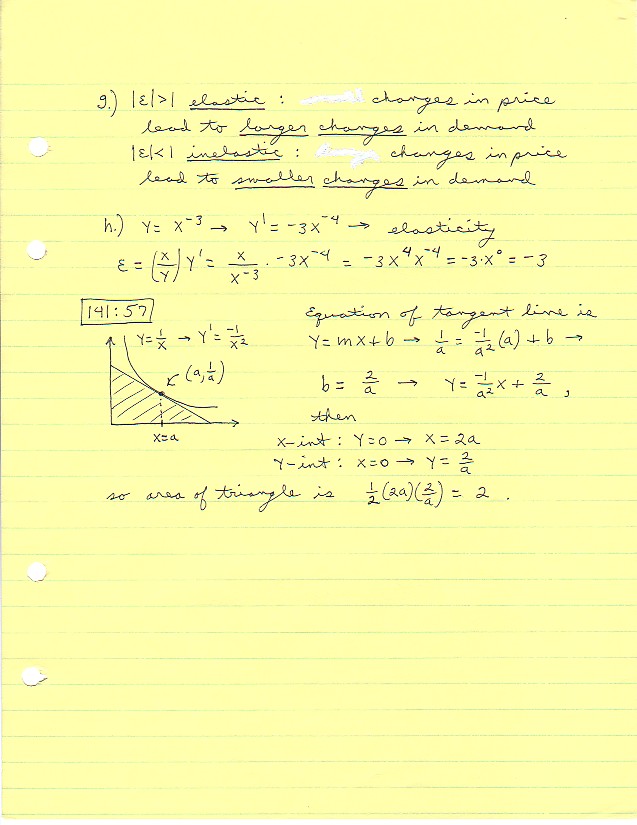 g.) |ε|>1 elastic : changes in price
lead to larger changes in demand
|ε|<1 inelastic : changes in price
lead to smaller changes in demand
h.) Y = X⁻³ → Y' = -3X⁻⁴ → elasticity
ε = (X/Y) Y' = X/X⁻³ · -3X⁻⁴ = -3X⁴X⁻⁴ = -3·X⁰ = -3
141:57
Equation of tangent line is
Y = 1/X → Y' = -1/X²
Y = mX + b → 1/a = -1/a² (a) + b →
(a, 1/a)
b = 2/a → Y = -1/a² X + 2/a ,
then
X=a
X-int : Y=0 → X=2a
Y-int : X=0 → Y = 2/a
so area of triangle is 1/2 (2a)(2/a) = 2 .